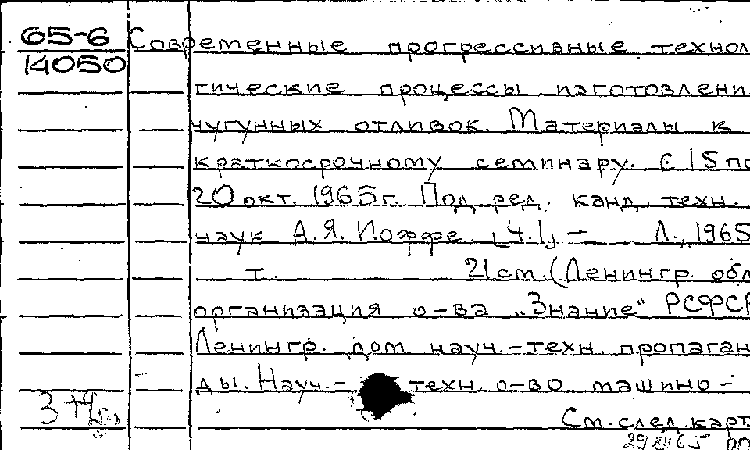 65-6
14050
Современные прогрессивные технол
гические процессы изготовлени
чугунных отливок. Материалы к
краткосрочному семинару. С 15 по
20 окт. 1965 г. Под ред. канд. техн.
наук А.Я. Иоффе. [Ч.1]. – Л., 1965
т. 21 см. (Ленингр. обл
организация о-ва „Знание" РСФСР
Ленингр. дом науч.-техн. пропаган
ды. Науч.- техн. о-во машино-
См. след. карт